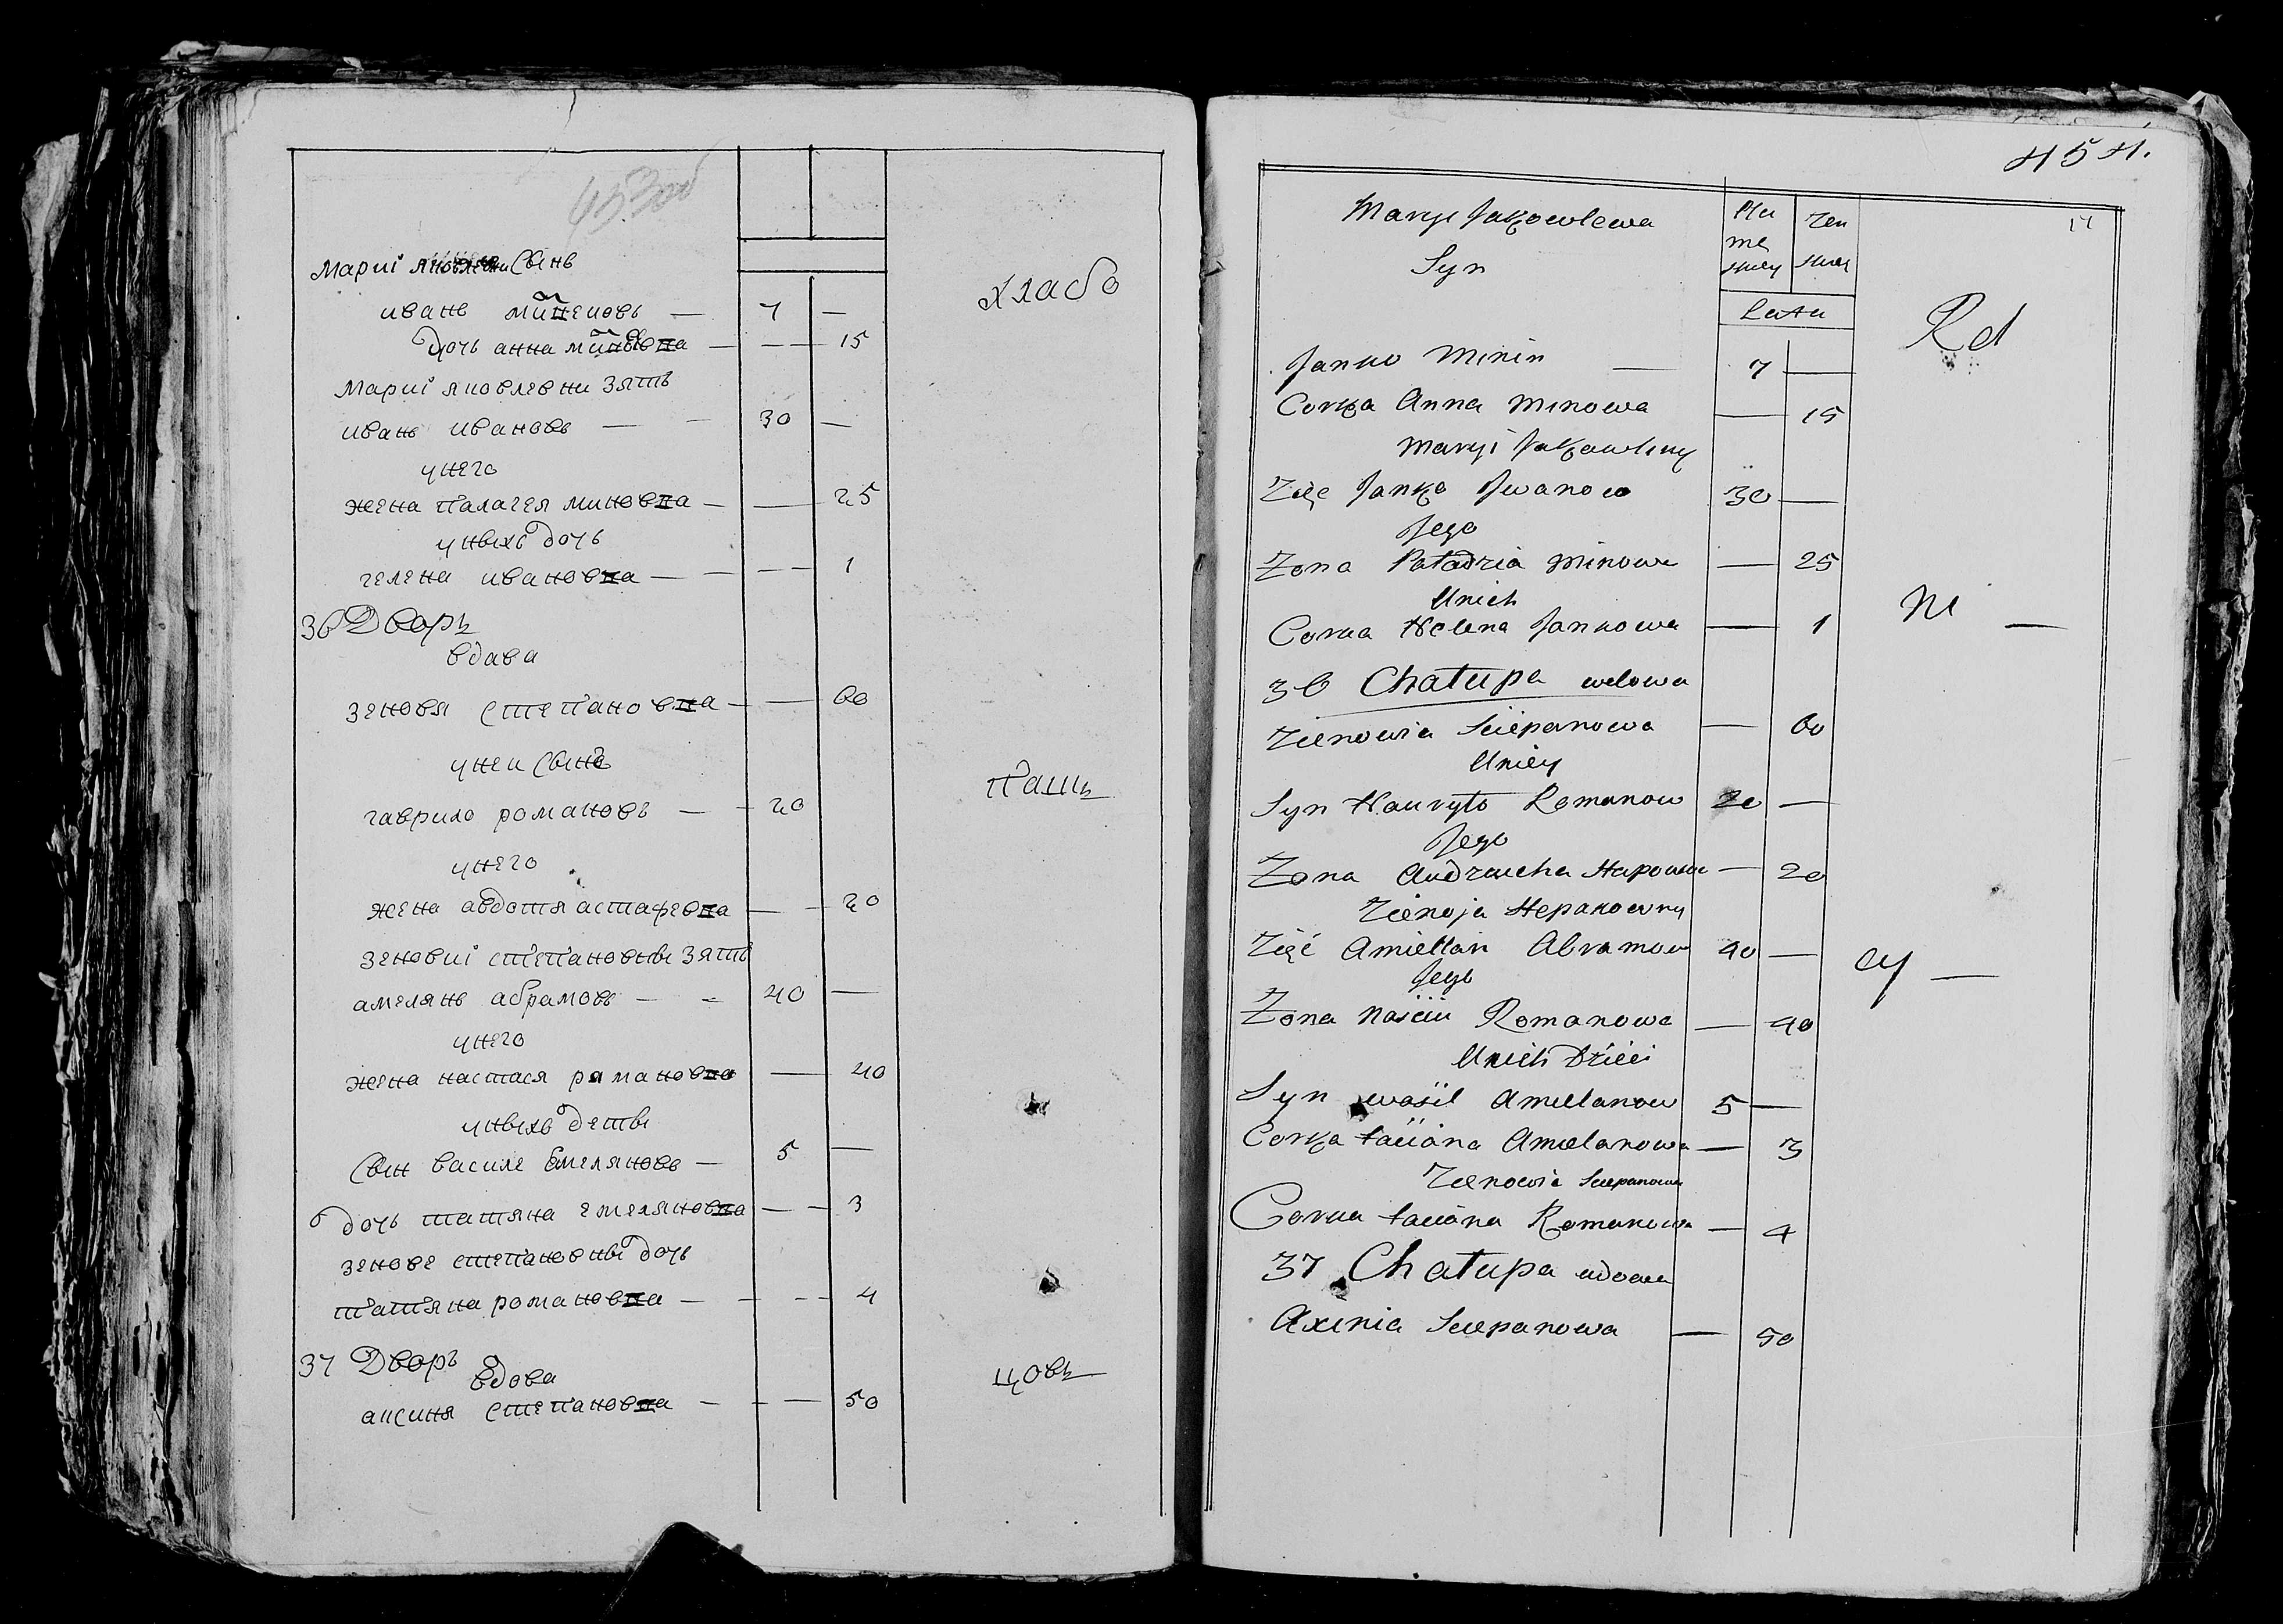 453об
Мариі яковлевни Сынъ
иванъ миненовъ — 7 —
дочь анна миновна — — 15
Мариі яковлевни зять
иванъ ивановъ — 30 —
унего
жена палагея миновна — — 25
унихъ дочь
гелена ивановна — — 1
36 Дворъ
вдава
зеновя степановна — — 60
унеи Сынъ
гаврило романовъ — 20
унего
жена авдотя астафевна — — 20
зеновиі степановны зять
амелянъ абрамовъ — 40 —
унего
жена настася рамановна — 40
унихъ дети
Сын василе Емеляновъ — 5 —
дочь татяна емеляновна — — 3
зенове степановны дочь
татяна романовна — — 4
37 Дворъ
вдова
аксиня степановна — — 50
хлабо
пашь
цовъ
454.
17
Maryi Jakowlewa
Syn
Lata
Rd
Janko Minin — 7 —
Corka Anna Minowa — 15
Maryi Jakowlewny
Zięc Janko Jwanow 30 —
Jego
Zona Minowa — 25
Unich
Corka Helena Jankowa — 1
Ni —
36 Chałupa wdowa
Zienowia Sciepanowa — 60
Uniey
Syn Hauryło Romanow 20 —
Jego
Zona — 20
Stepanowny
Zięć Amiellan Abramow 40 —
Jego
cy —
Zona Romanowa — 40
Unich Dzieci
Syn wasil Amiellanow 5 —
Corka taciana Amielanowa — 3
Zienowia Sciepanowa
Corka taciana Romanowa — 4
37 Chałupa wdowa
Axinia Sciepanowa — 50